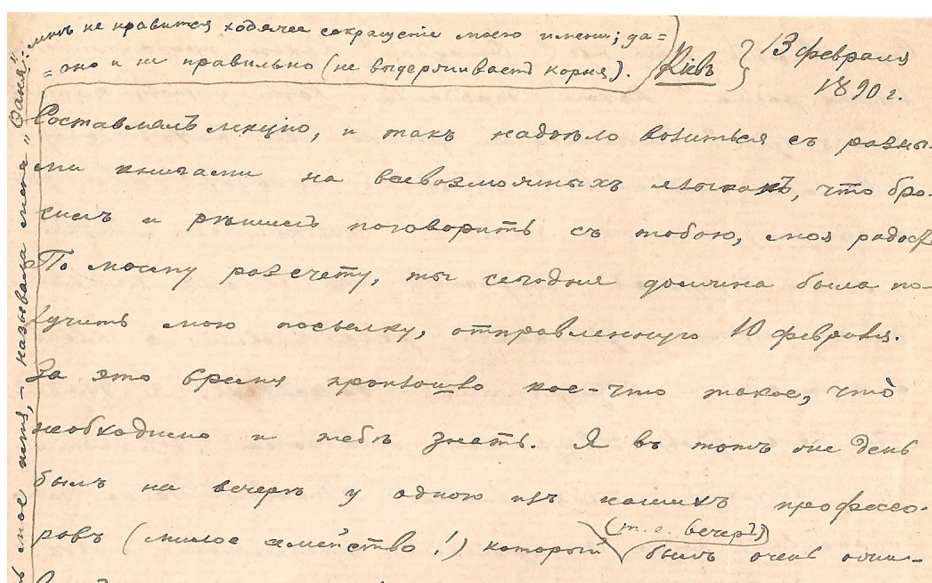 мнѣ не нравится ходячее сокращеніе моего имени; да=
=оно и не правильно (не выдерживаетъ корня).
Кіевъ } 13 февраля
1890 г.
Составлялъ лекцію, и такъ надоѣло возиться съ разны-
ми книгами на всевозможныхъ языкахъ, что бро-
силъ и рѣшилъ поговорить съ тобою, моя радость
По моему разсчету, ты сегодня должна была по-
лучить мою посылку, отправленную 10 февраля.
За это время произошло кое-что такое, что
необходимо и тебѣ знать. Я въ тотъ же день
былъ на вечерѣ у одного изъ нашихъ профессо-
ровъ (милое семейство!) который (т. е. вечеръ) былъ очень ожи-
мое имя, – называла меня „Ваня“: